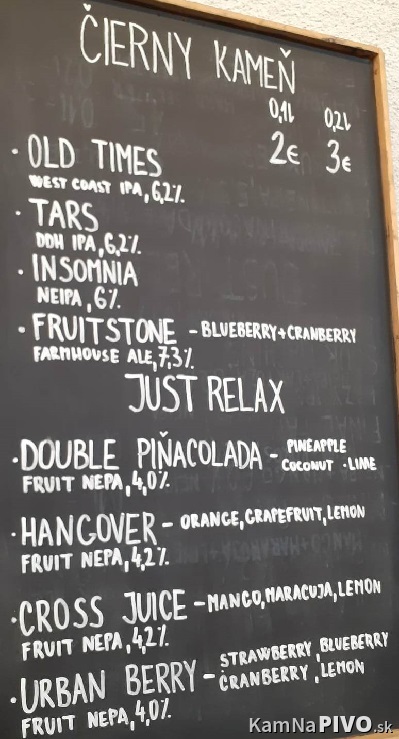 ČIERNY KAMEŇ
0,1l 0,2l
· OLD TIMES 2€ 3€
WEST COAST IPA, 6,2%
· TARS
DDH IPA, 6,2%.
· INSOMNIA
NEIPA, 6%.
· FRUITSTONE - BLUEBERRY+CRANBERRY
FARMHOUSE ALE, 7,3%
JUST RELAX
· DOUBLE PIŇACOLADA - PINEAPPLE
COCONUT · LIME
FRUIT NEPA, 4,0%.
· HANGOVER - ORANGE, GRAPEFRUIT, LEMON
FRUIT NEPA, 4,2%.
· CROSS JUICE - MANGO, MARACUJA, LEMON
FRUIT NEPA, 4,2%.
· URBAN BERRY - STRAWBERRY, BLUEBERRY
CRANBERRY, LEMON
FRUIT NEPA, 4,0%.
KamNaPIVO.sk